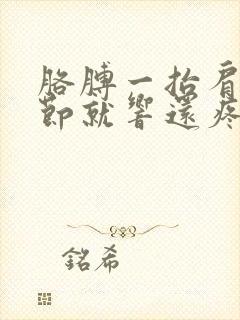 胳膊一抬肩
節就響還疼
銘希